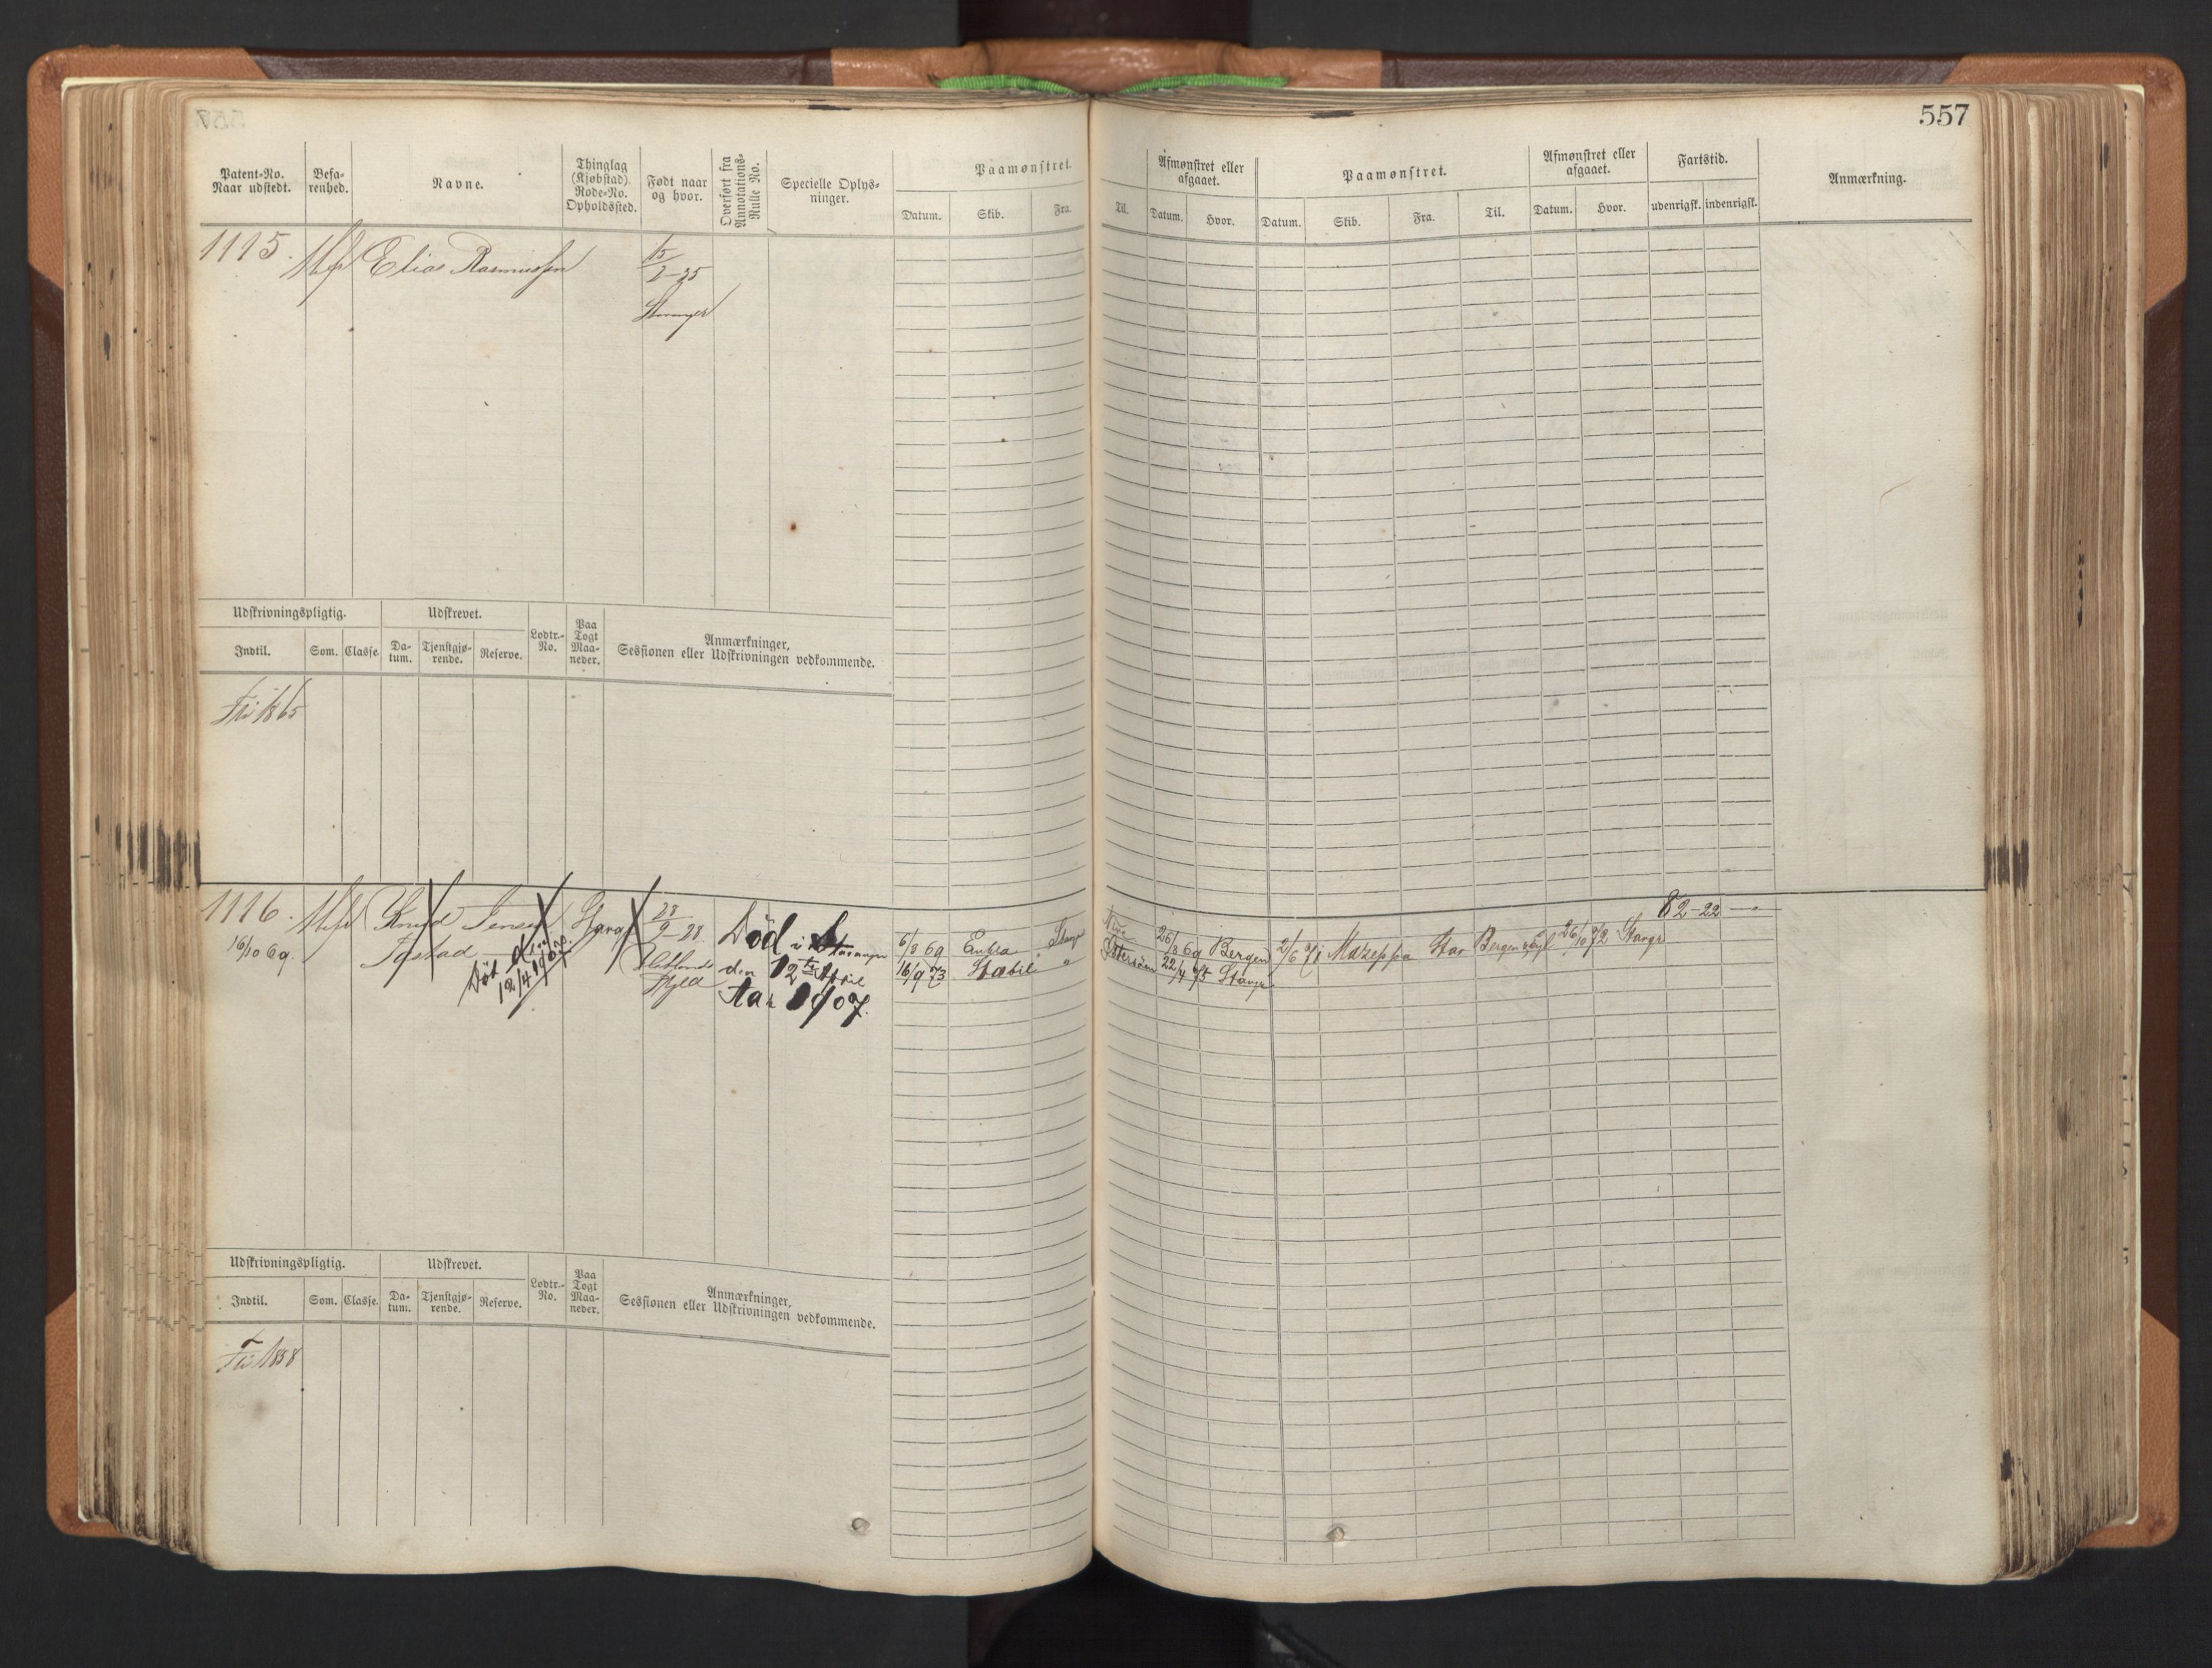 557
Patent-No. Naar udstedt.
Befarenhed.
Navne.
Thinglag (Kjøbstad) Rode-No. Opholdssted.
Født naar og hvor.
Overført fra Annotations-Rulle No.
Specielle Oplysninger.
Paamønstret.
Datum. Skib. Fra.
Til.
Afmønstret eller afgaaet.
Datum. Hvor.
Paamønstret.
Datum. Skib. Fra. Til.
Afmønstret eller afgaaet.
Datum. Hvor.
Fartstid.
udenrigsk. indenrigsk.
Anmærkning.
1115. Elias Rasmussen 15/2-25
Stavanger
Udskrivningspligtig. Udskrevet.
Lodtr.-No.
Paa Togt Maaneder.
Anmærkninger, Sessionen eller Udskrivningen vedkommende.
Indtil. Som. Classe. Datum. Tjenstgjørende. Reserve.
Fri 1865
1116. Knud Jensen Stavg 28/9-28
16/10 69.
Tastad
Død
12/4 1907.
Hetlands
Død i Stavanger
den 12te April
Aar 1907.
6/8 69 Enbla Stavgr 26/8 69 Bergen 2/6 71 Mazeppa Stav Bergen 26/10 72 Stavgr
16/9 73 Stabil " Østersøen 22/4 75 Stavgr
82-22
Udskrivningspligtig. Udskrevet.
Lodtr.-No.
Paa Togt Maaneder.
Anmærkninger, Sessionen eller Udskrivningen vedkommende.
Indtil. Som. Classe. Datum. Tjenstgjørende. Reserve.
Fri 1888